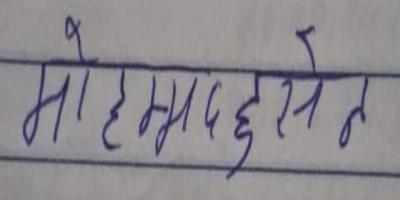 मोहम्मद हुसेन